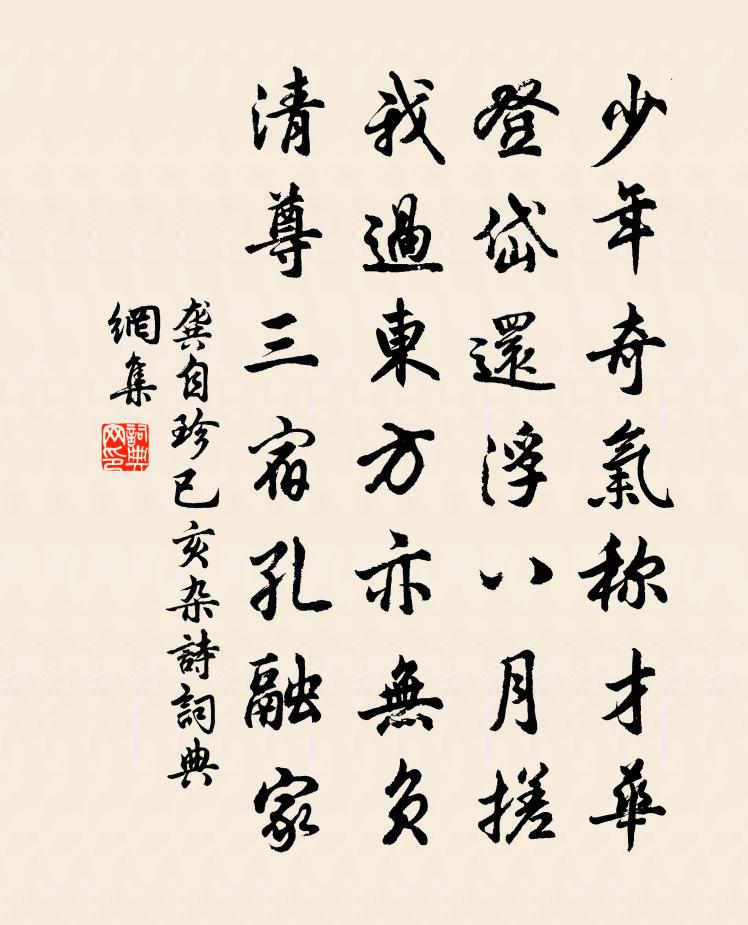 少年奇氣称才華
登岱還浮八月搓
我過東方亦無負
清尊三宿孔融家
龔自珍己亥杂詩詞典
網集
詞典
网印